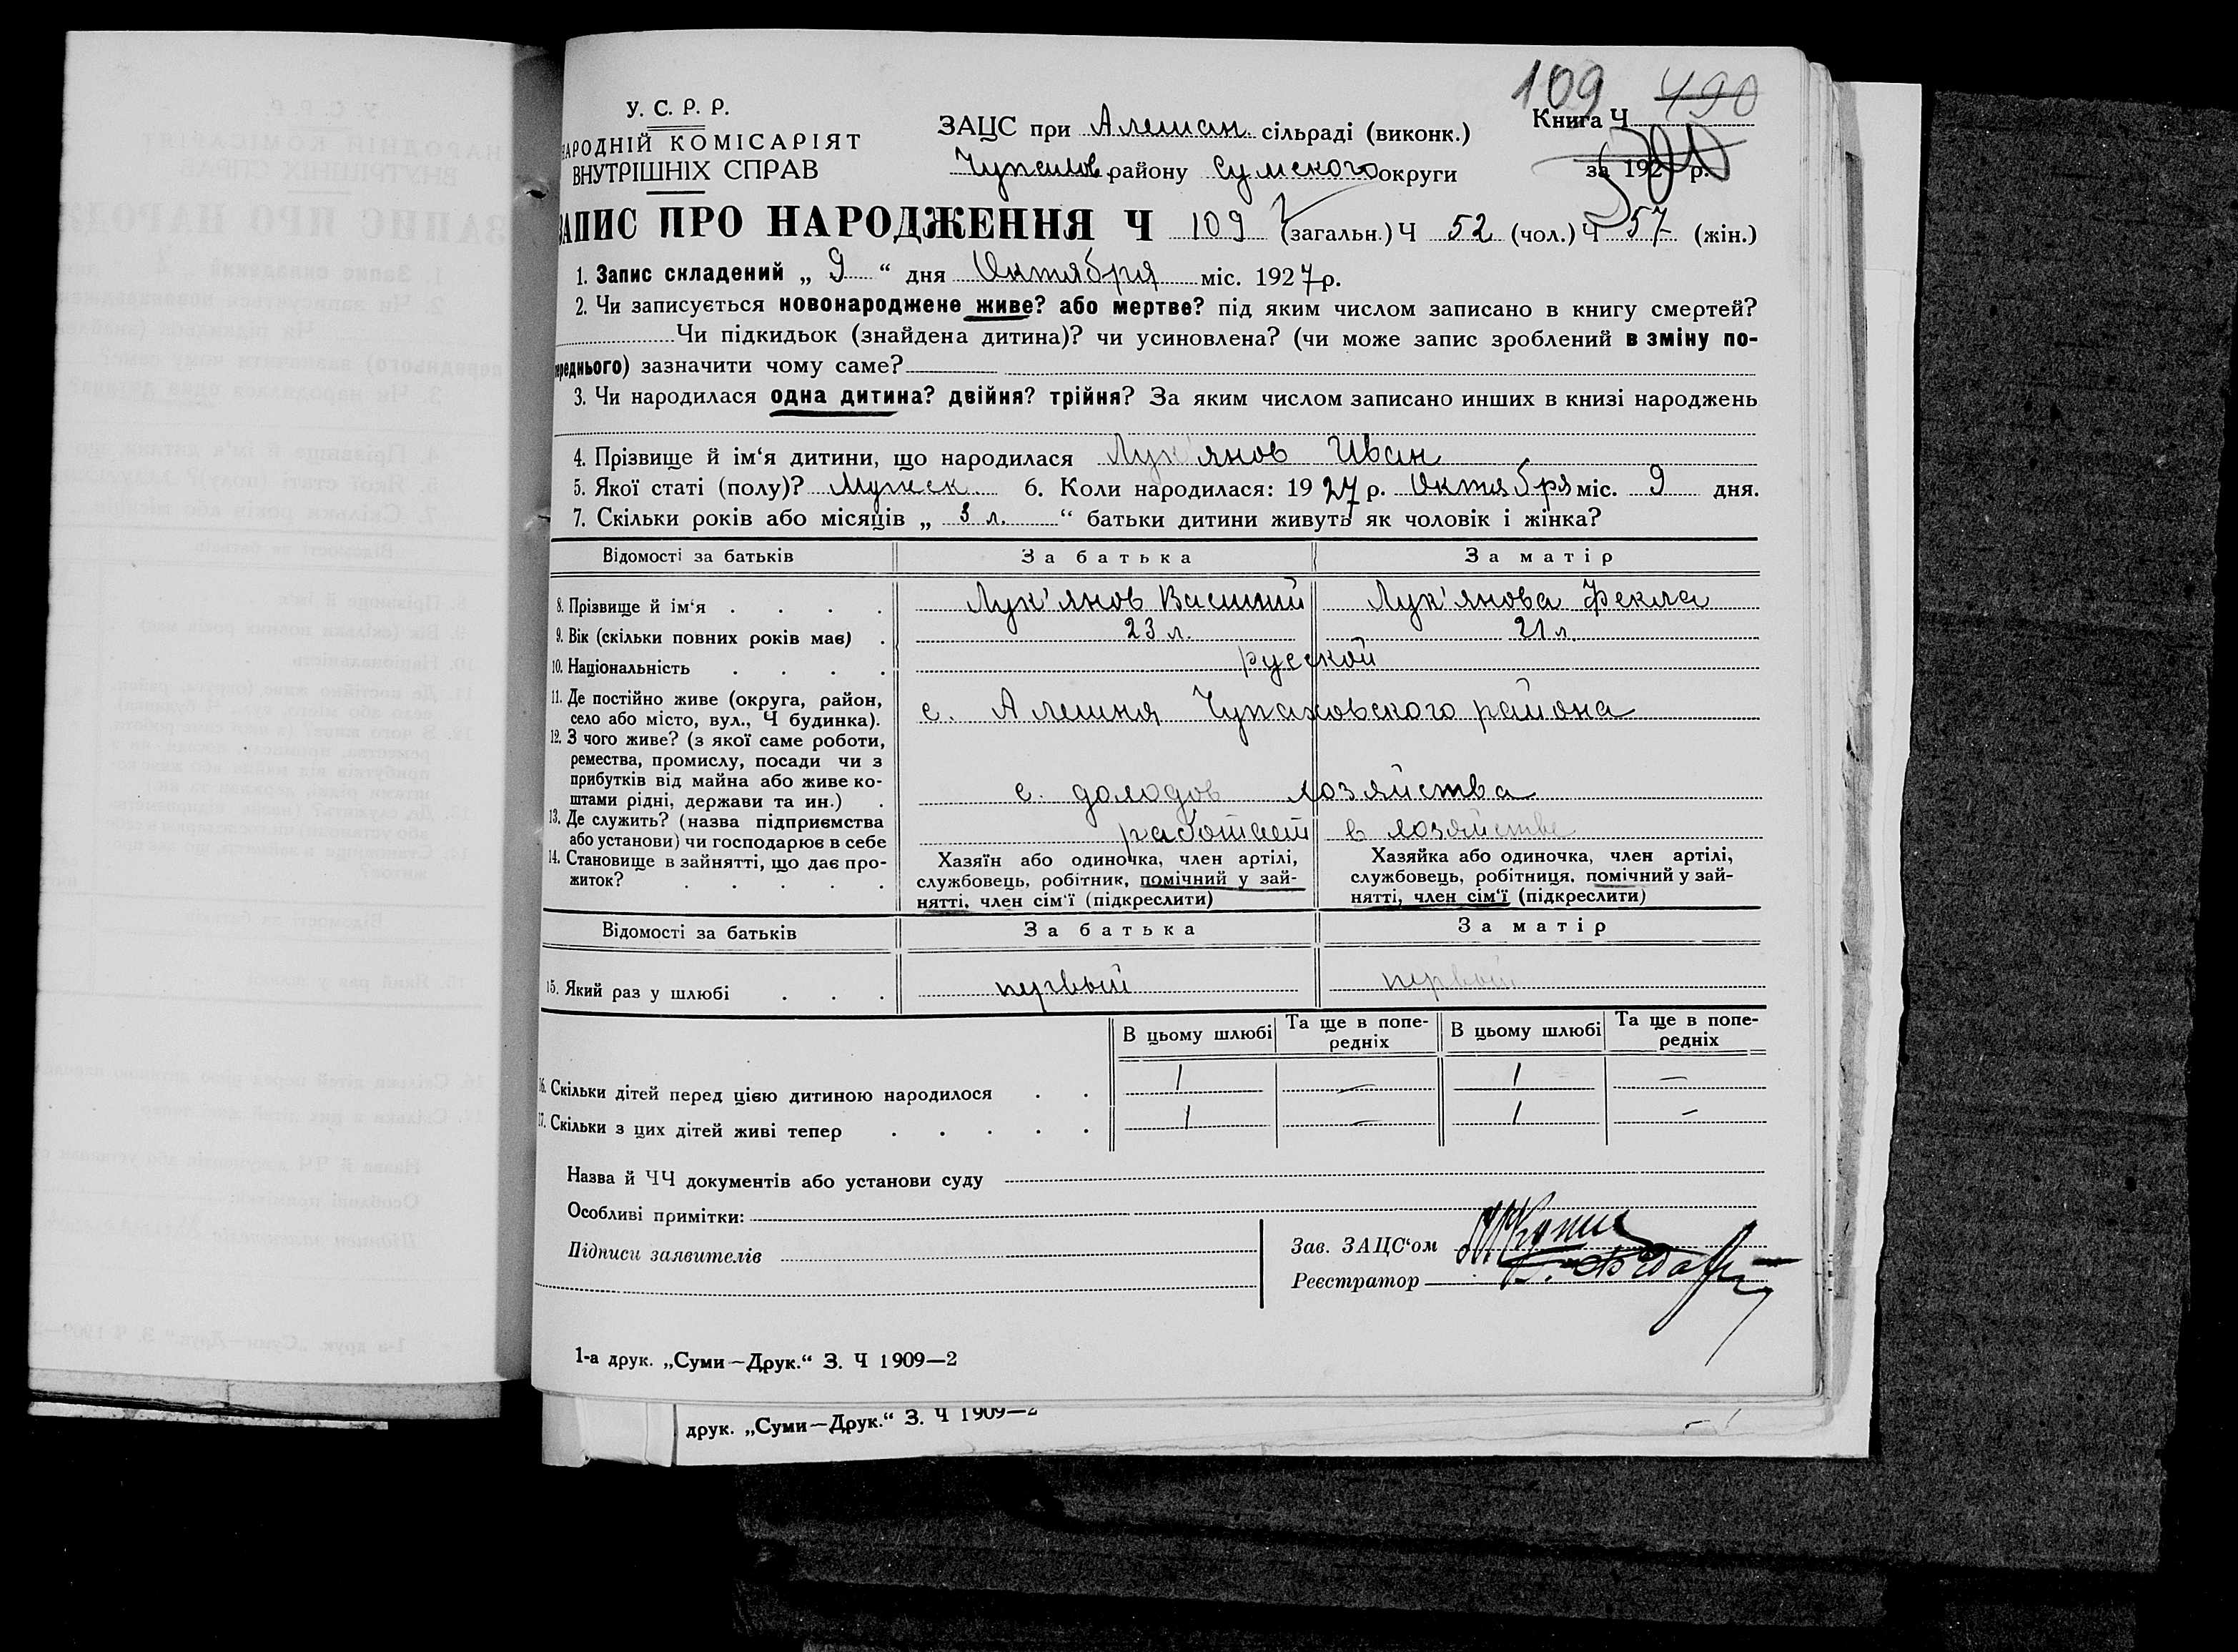 109 490
У. С. Р. Р.
НАРОДНІЙ КОМІСАРІЯТ
ВНУТРІШНІХ СПРАВ
ЗАЦС при Алешан. сільраді (виконк.)
Чупахов. району Сумского округи
Книга Ч
за 192 р.
ЗАПИС ПРО НАРОДЖЕННЯ Ч 109 (загальн.) Ч 52 (чол.) Ч 57 (жін.)
1. Запис складений „ 9 “ дня Октября міс. 1927 р.
2. Чи записується новонароджене живе? або мертве? під яким числом записано в книгу смертей?
Чи підкидьок (знайдена дитина)? чи усиновлена? (чи може запис зроблений в зміну по-
ереднього) зазначити чому саме?
3. Чи народилася одна дитина? двійня? трійня? За яким числом записано инших в книзі народжень
4. Прізвище й ім‘я дитини, що народилася Лук'янов Иван
5. Якої статі (полу)? Мужск. 6. Коли народилася: 1927 р. Октября міс. 9 дня.
7. Скільки років або місяців „ 3 л. “ батьки дитини живуть як чоловік і жінка?
Відомості за батьків За батька За матір
8. Прізвище й ім‘я . . . . Лук'янов Василий Лук'янова Фекла
9. Вік (скільки повних років має) . 23 л. 21 л.
10. Національність . . . . русской
11. Де постійно живе (округа, район,
село або місто, вул., Ч будинка). с. Алешня Чупаховского района
12. З чого живе? (з якої саме роботи,
ремества, промислу, посади чи з
прибутків від майна або живе ко-
штами рідні, держави та ин.) . с. доходов хозяйства
13. Де служить? (назва підприємства
або установи) чи господарює в себе работает в хозяйстве
14. Становище в зайнятті, що дає про-
житок? . . . . .
Хазяїн або одиночка, член артілі,
службовець, робітник, помічний у зай-
нятті, член сім‘ї (підкреслити)
Хазяйка або одиночка, член артілі,
службовець, робітниця, помічний у зай-
нятті, член сім‘ї (підкреслити)
Відомості за батьків За батька За матір
15. Який раз у шлюбі . . . первый первый
В цьому шлюбі Та ще в попе-
редніх В цьому шлюбі Та ще в попе-
редніх
16. Скільки дітей перед цією дитиною народилося . . 1 — 1 —
17. Скільки з цих дітей живі тепер . . . . . 1 — 1 —
Назва й ЧЧ документів або установи суду
Особливі примітки:
Підписи заявителів
Зав. ЗАЦС‘ом
Реєстратор
1-а друк. „Суми—Друк.“ З. Ч 1909—2
друк. „Суми—Друк.“ З. Ч 1909—2